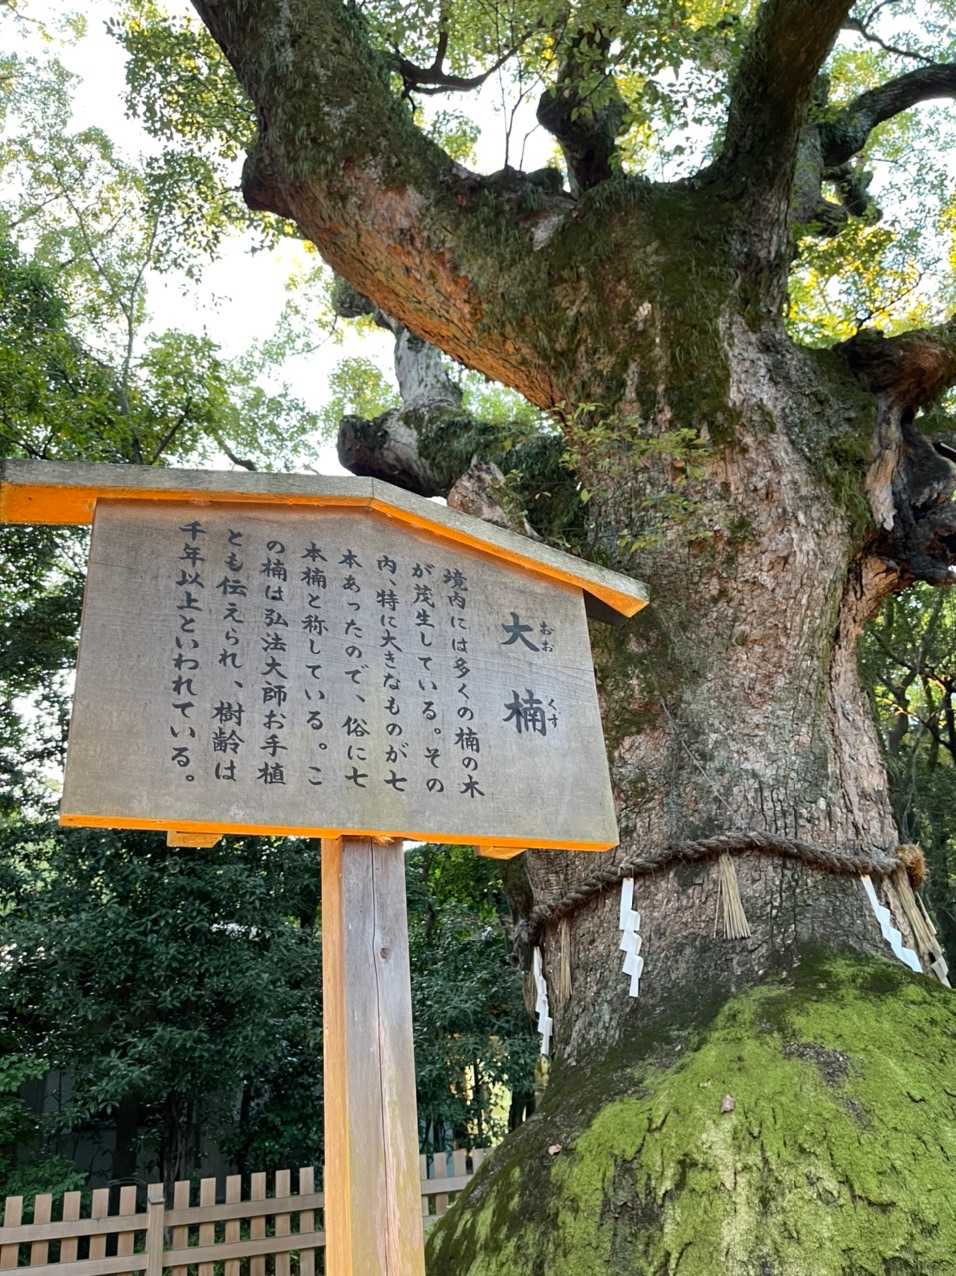 大楠
おおくす
境内には多くの楠の木
が茂生している。その
内、特に大きなものが七
本あったので、俗に七
本楠と称している。こ
の楠は弘法大師お手植
とも伝えられ、樹齢は
千年以上といわれている。